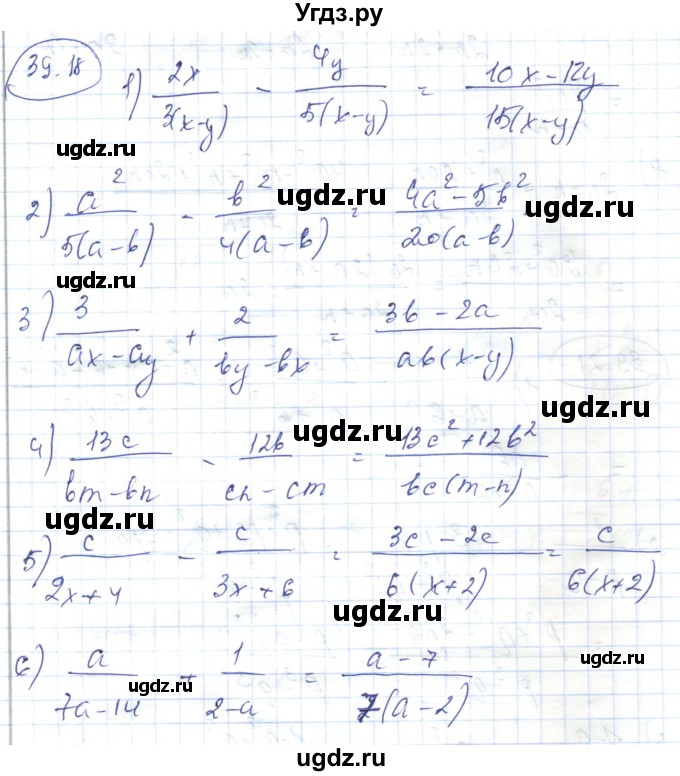 Угдз.ру
39.18
1) 2x/3(x-y) - 4y/5(x-y) = 10x-12y/15(x-y)
ugdz.ru ugdz.ru
2) a²/5(a-b) - b²/4(a-b) = 4a²-5b²/20(a-b)
ugdz.ru ugdz.ru
ugdz.ru
3) 3/ax-ay + 2/by-bx = 3b-2a/ab(x-y)
ugdz.ru ugdz.ru
ugdz.ru ugdz.ru
4) 13c/bm-bn - 12b/cn-cm = 13c²+12b²/bc(m-n)
ugdz.ru
5) c/2x+4 - c/3x+6 = 3c-2c/6(x+2) = c/6(x+2)
ugdz.ru ugdz.ru
6) a/7a-14 + 1/2-a = a-7/7(a-2)
ugdz.ru ugdz.ru
ugdz.ru